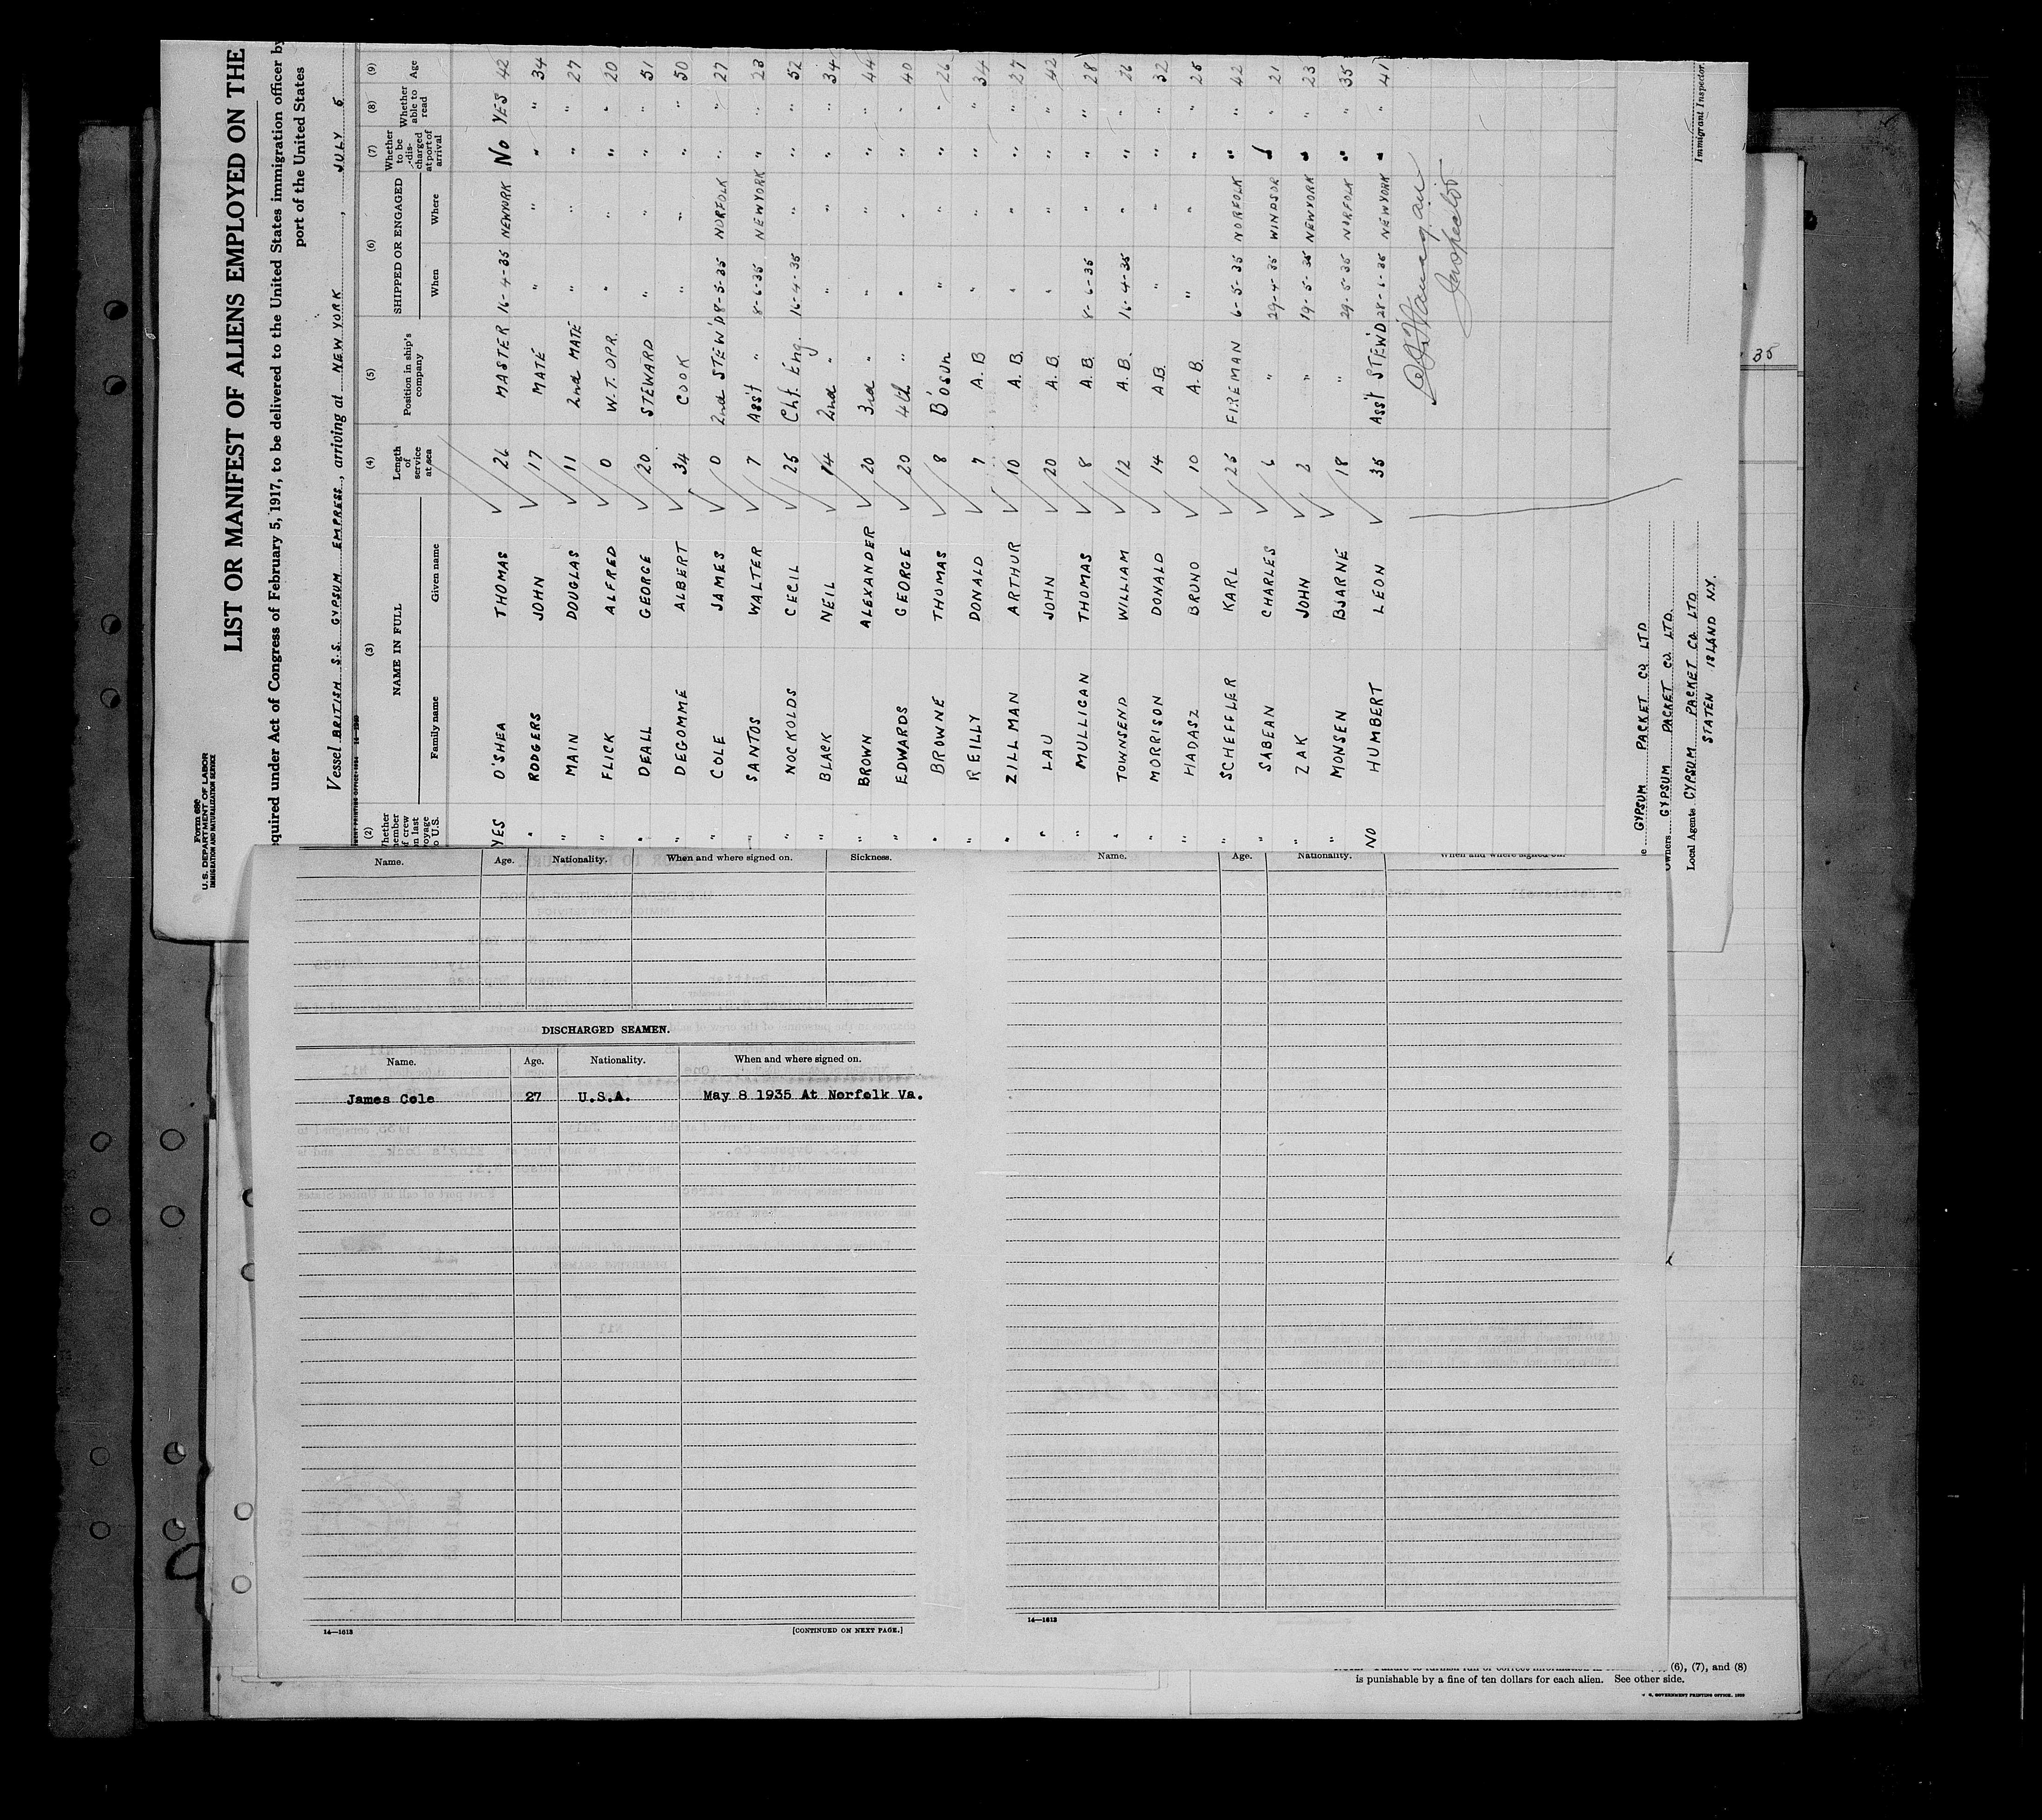 Form 680
U. S. DEPARTMENT OF LABOR
IMMIGRATION AND NATURALIZATION SERVICE
LIST OR MANIFEST OF ALIENS EMPLOYED ON THE
equired under Act of Congress of February 5, 1917, to be delivered to the United States immigration officer by
port of the United States
Vessel BRITISH S.S. GYPSUM EMPRESS, arriving at NEW YORK, JULY 5
(2) (3) (4) (5) (6) (7) (8) (9)
hether member of crew on last voyage to U.S. NAME IN FULL Length of service at sea Position in ship's company SHIPPED OR ENGAGED Whether to be dis- charged at port of arrival Whether able to read Age
Family name Given name When Where
YES O'SHEA THOMAS 26 MASTER 16-4-35 NEWYORK No YES 42
" RODGERS JOHN 17 MATE " " " " 34
" MAIN DOUGLAS 11 2nd MATE " " " " 27
" FLICK ALFRED 0 W.T. OPR. " " " " 20
" DEALL GEORGE 20 STEWARD " " " " 51
" DEGOMME ALBERT 34 COOK " " " " 50
" COLE JAMES 0 2nd STEW'D 8-5-35 NORFOLK " " 27
" SANTOS WALTER 7 Ass't " 8-6-35 NEWYORK " " 23
" NOCKOLDS CECIL 25 Chf. Eng. 16-4-35 " " " 52
" BLACK NEIL 14 2nd " " " " " 34
" BROWN ALEXANDER 20 3rd " " " " " 44
" EDWARDS GEORGE 20 4th " " " " " 40
" BROWNE THOMAS 8 B'osun " " " " 26
" REILLY DONALD 7 A.B " " " " 34
" ZILLMAN ARTHUR 10 A.B. " " " " 27
" LAU JOHN 20 A.B. " " " " 42
" MULLIGAN THOMAS 8 A.B. 8-6-35 " " " 28
" TOWNSEND WILLIAM 12 A.B. 16-4-35 " " " 26
" MORRISON DONALD 14 A.B. " " " " 32
" HADASZ BRUNO 10 A.B. " " " " 25
" SCHEFFLER KARL 25 FIREMAN 6-5-35 NORFOLK " " 42
" SABEAN CHARLES 6 " 29-4-35 WINDSOR " " 21
" ZAK JOHN 2 " 19-5-35 NEWYORK " " 23
" MONSEN BJARNE 18 " 29-5-35 NORFOLK " " 35
NO HUMBERT LEON 35 Ass't STEW'D 28-6-35 NEWYORK " " 41
Inspector
Immigrant Inspector.
GYPSUM PACKET CO LTD
Owners GYPSUM PACKET CO LTD.
Local Agents GYPSUM PACKET CO LTD
STATEN ISLAND N.Y.
35
Name. Age. Nationality. When and where signed on. Sickness.
DISCHARGED SEAMEN.
Name. Age. Nationality. When and where signed on.
James Cole 27 U.S.A. May 8 1935 At Norfolk Va.
14—1613 [CONTINUED ON NEXT PAGE.]
Name. Age. Nationality. When and where signed on.
14—1613
(6), (7), and (8)
is punishable by a fine of ten dollars for each alien. See other side.
GOVERNMENT PRINTING OFFICE